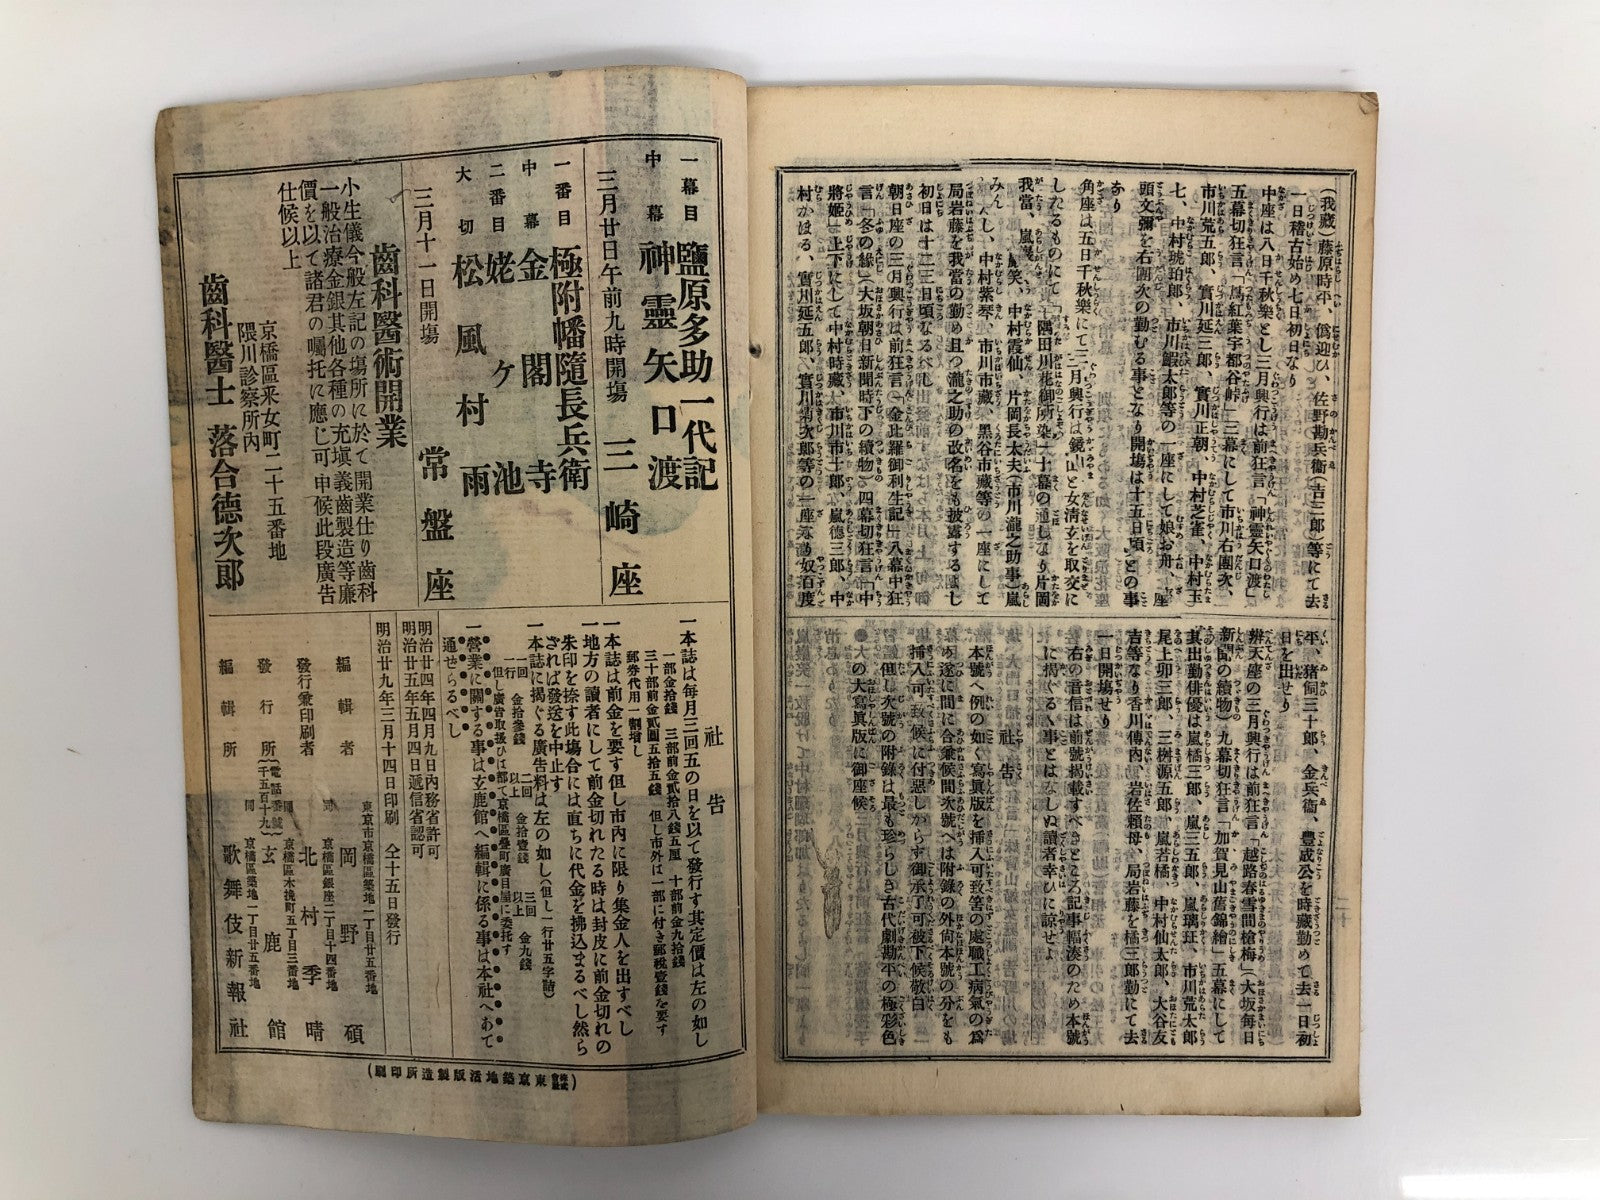 (我藏)藤原時平、僞迎ひ、佐野勘兵衞(吉三郎)等にて去
一日稽古始め七日初日なり
中座は八日千秋樂とし三月興行は前狂言「神靈矢口渡」
五幕切狂言「蔦紅葉宇都谷峠」三幕にして市川右團次、
市川荒五郎、實川延三郎、實川正朝、中村芝雀、中村玉
七、中村琥珀郎、市川鰕太郎等の一座にして娘お舟、
頭文彌を右團次の勤むる事となり開塲は十五日頃との事
なり
角座は五日千秋樂にて三月興行は鏡山と女淸玄を取交に
したるものにて「隅田川花御所染」十幕の通しなり片岡
我當、嵐巖笑、中村霞仙、片岡長太夫(市川瀧之助事)嵐
みんし、中村紫琴、市川市藏、黑谷市藏等の一座にして
局岩藤を我當の勤め且つ瀧之助の改名をも披露するよし
初日は十二三日頃なるべし
朝日座の三月興行は前狂言「金比羅御利生記」八幕中狂
言「冬の緣」(大坂朝日新聞時下の續物)四幕切狂言「中
將姬」上下にして中村時藏、市川市十郎、嵐德三郎、中
村かほる、實川延五郎、實川菊次郎等の一座
平、猪飼三十郎、金兵衞、豐成公を時藏勤めて去一日初
日を出せり
辨天座の三月興行は前狂言「越路春雪間槍梅」(大坂每日
新聞の續物)九幕切狂言「加賀見山舊錦繪」五幕にして
其出勤俳優は嵐橘三郎、嵐三五郎、嵐璃玨、市川荒太郎
尾上卯三郎、三桝源五郎、嵐若橘、中村仙太郎、大谷友
吉等なり香川傳內、岩佐賴母、局岩藤を橘三郎勤にて去
一日開塲せり
右の音信は前號揭載すべきところ記事輻湊のため本號
に揭ぐる事とはなしぬ讀者幸ひに諒せよ
社告
本號へ例の如く寫眞版を挿入可致筈の處職工病氣の爲
め遂に間に合兼候間次號へは附錄の外尙本號の分をも
挿入可致候に付惡しからず御承了可被下候敬白
但し次號の附錄は最も珍らしき古代劇勘平の極彩色
の大寫眞版に御座候
一幕目 鹽原多助一代記
中幕 神靈矢口渡
三月廿日午前九時開塲 三崎座
一番目 極附幡隨長兵衞
中幕 金閣寺
二番目 姥ヶ池
大切 松風村雨
三月十一日開塲 常盤座
齒科醫術開業
小生儀今般左記の塲所に於て開業仕り齒科
一般治療金銀其他各種の充塡義齒製造等廉
價を以て諸君の囑托に應じ可申候此段廣告
仕候以上
京橋區釆女町二十五番地
隈川診察所內
齒科醫士 落合德次郎
社告
一本誌は每月三回五の日を以て發行す其定價は左の如し
一部金拾錢 三部前金貳拾八錢五厘 十部前金九拾錢
三十部前金貳圓五拾五錢 但し市外は一部に付き郵稅壹錢を要す
郵券代用一割增し
一本誌は前金を要す但し市內に限り集金人を出すべし
一地方の讀者にして前金切れたる時は封皮に前金切れの
朱印を捺す此塲合には直ちに代金を拂込まるべし然ら
ざれば發送を中止す
一本誌に揭ぐる廣告料は左の如し(但し一行廿五字詰)
一回一行 金拾參錢 二回以上 金拾壹錢 三回以上 金九錢
但し廣告取扱ひは都て京橋區疊町廣目屋に委托す
一營業に關する事は玄鹿館へ編輯に係る事は本社へあて
通せらるべし
明治廿四年四月九日內務省許可
明治廿五年五月四日遞信省認可
明治廿九年三月十四日印刷 仝十五日發行
編輯者 東京市京橋區築地一丁目廿五番地 岡野碩
發行兼印刷者 同京橋區銀座二丁目十四番地 北村季晴
發行所 同京橋區木挽町五丁目三番地 玄鹿館
(電話番號千五百十九)
編輯所 同京橋區築地一丁目廿五番地 歌舞伎新報社
(株式會社東京築地活版製造所印刷)